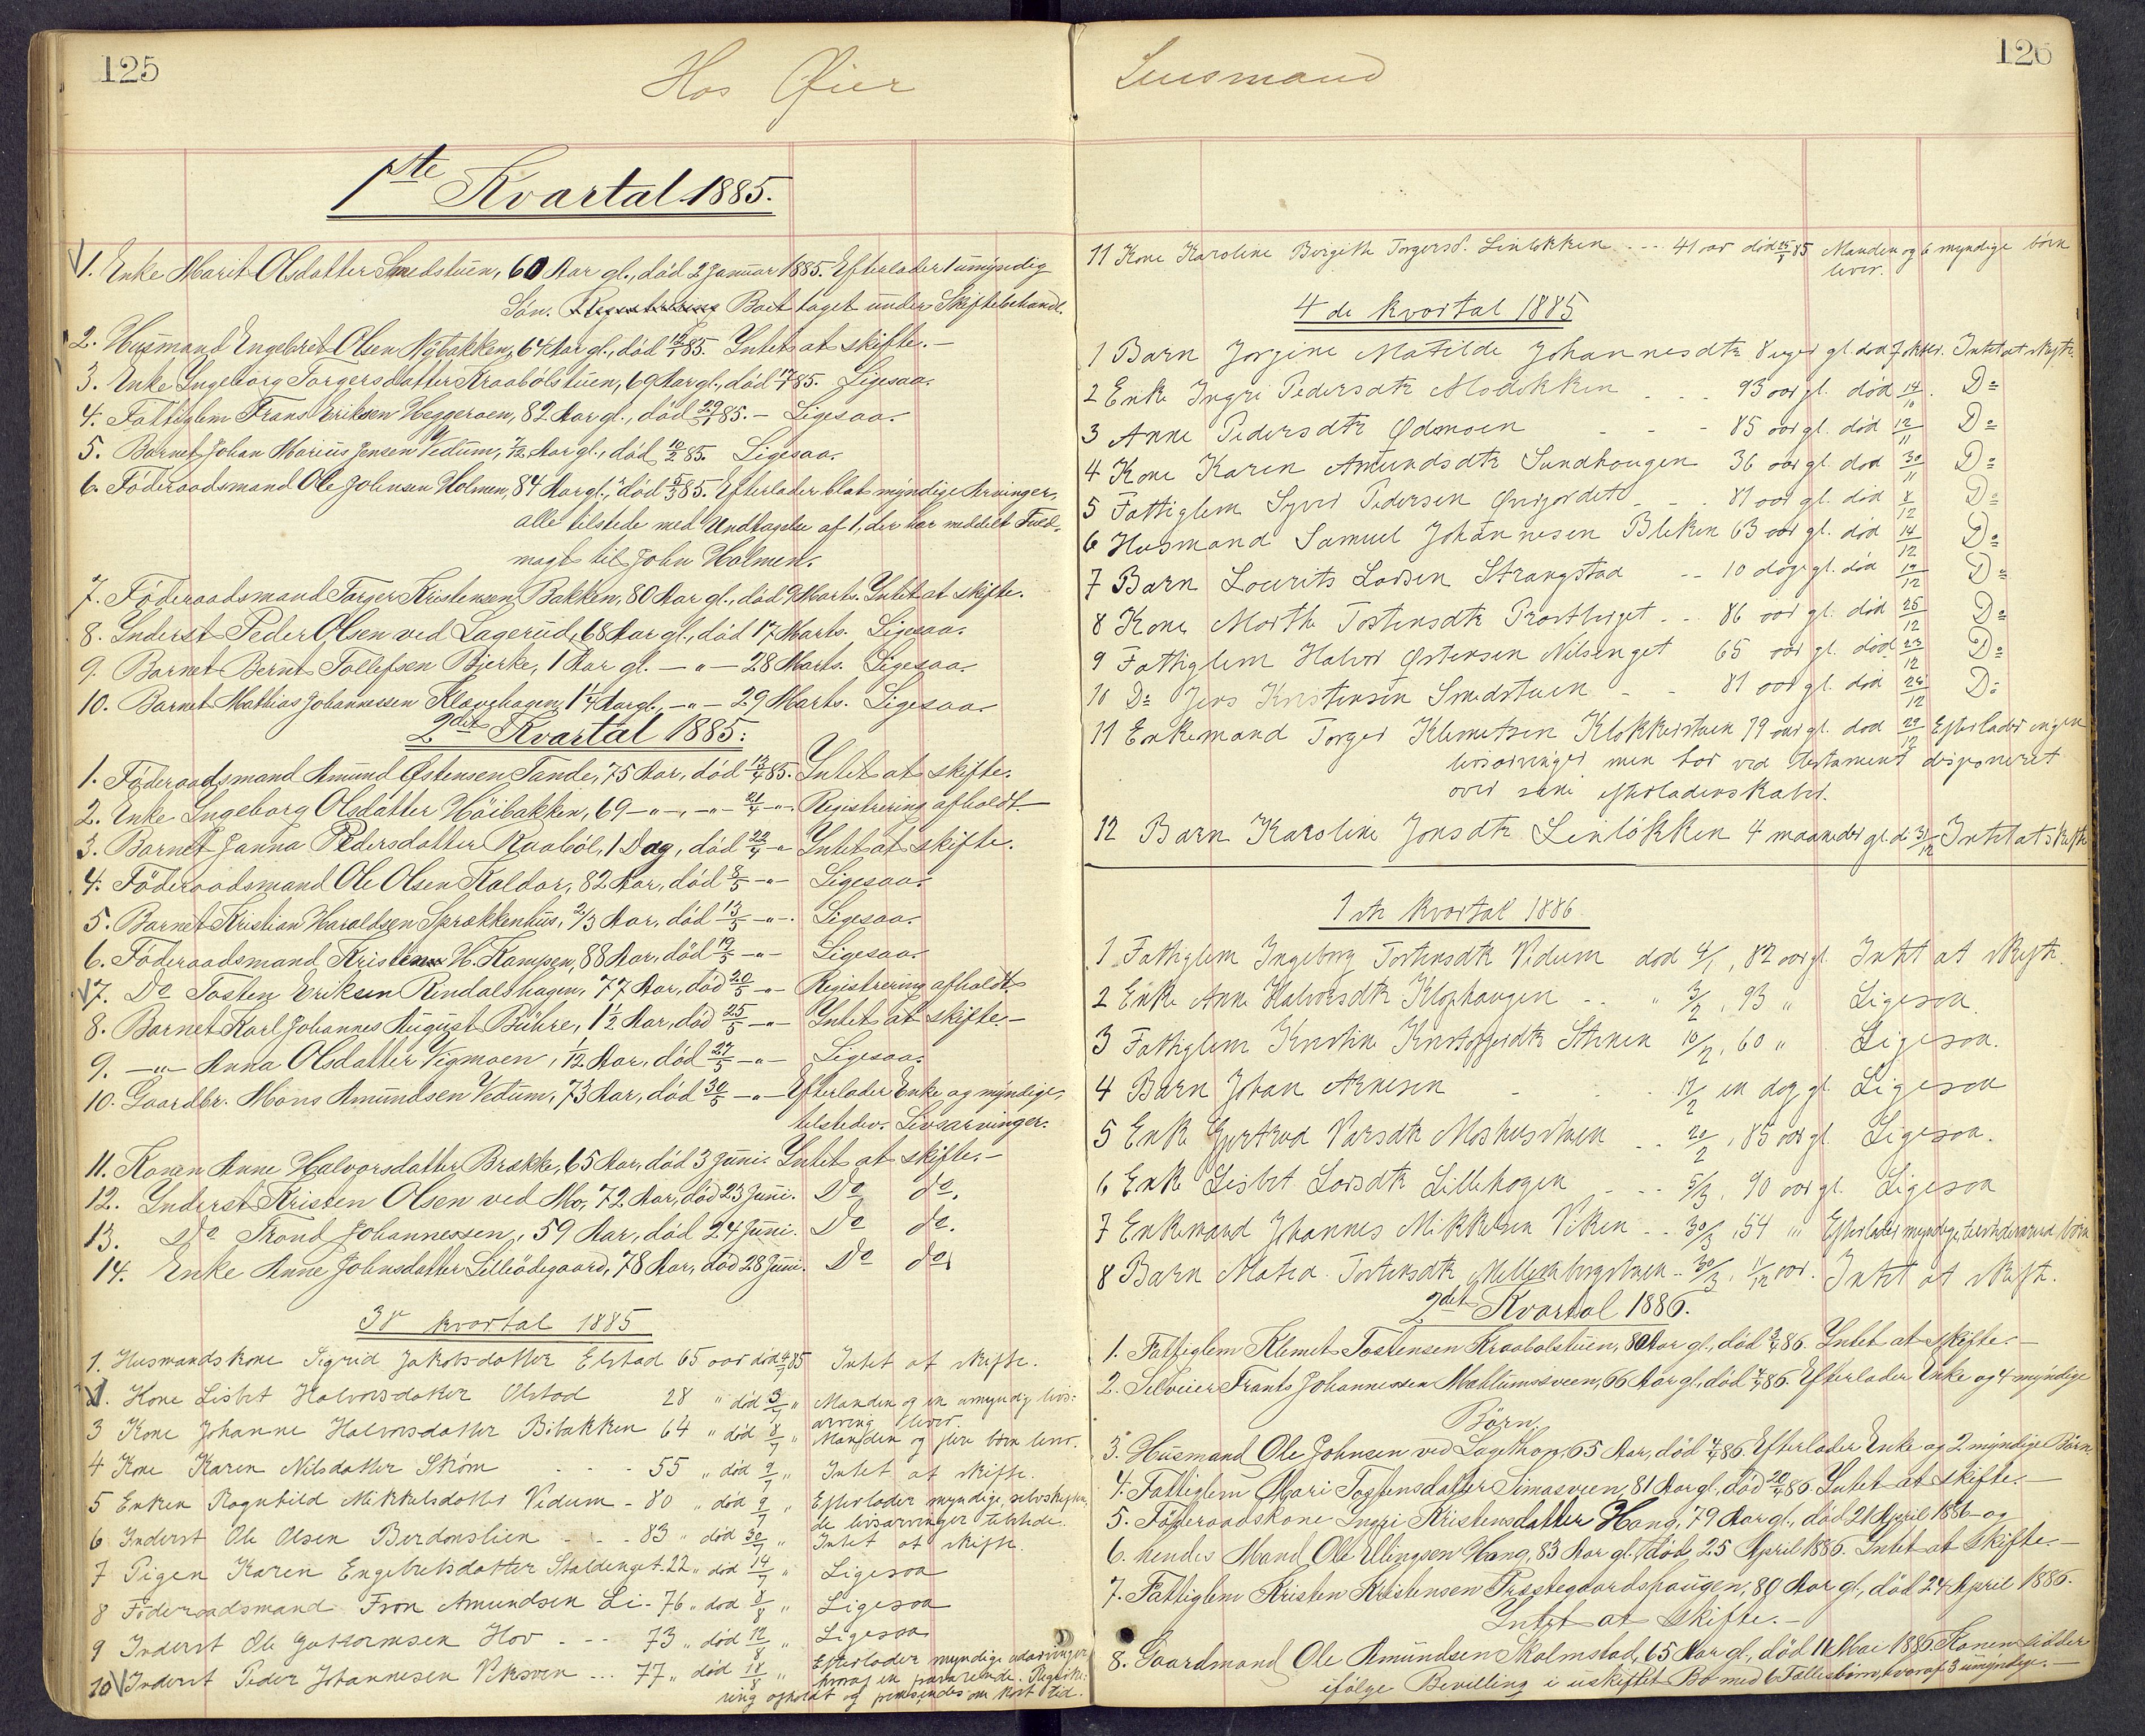 125
Hos Øier
1ste Kvartal 1885.
1. Enke Marit Olsdatter Smedstuen, 60 Aar gl., död 2 Januar 1885. Efterlader 1 umyndig
Sön. Boet taget under Skiftebehandl.
2. Husmand Engebret Olsen Nybakken, 64 Aar gl., död /1 85. Intet at skifte. -
3. Enke Ingeborg Torgersdatter Kraabölstuen, 69 Aar gl., död 85. Ligesaa.
4. Fattiglem Frans Eriksen Heggeroen, 82 Aar gl., död 29/1 85. - Ligesaa.
5. Barnet Johan Marius Jensen Vedum, 7/12 Aar gl., död 10/2 85. Ligesaa.
6. Föderaadsmand Ole Johnsen Holmen, 84 Aar gl., död 5/3 85. Efterlader blot myndige Arvinger,
alle tilstede med Undtagelse af 1, der har meddelt Fuld-
magt til John Holmen.
7. Föderaadsmand Torger Kristensen Bakken, 80 Aar gl., död 9 Marts. Intet at skifte.
8. Inderst Peder Olsen ved Lagerud, 68 Aar gl., död 17 Marts. Ligesaa.
9. Barnet Bernt Tollefsen Bjerke, 1 Aar gl. - " - 28 Marts. Ligesaa.
10. Barnet Mathias Johannessen Klavehagen, 1 1/4 Aar gl., - " - 29 Marts. Ligesaa.
2det Kvartal 1885.
1. Föderaadsmand Amund Østensen Tande, 75 Aar, död 13/4 85. Intet at skifte.
2. Enke Ingeborg Olsdatter Höibakken, 69 - " - , - " - 21/4 - " - Registrering afholdt
3. Barnet Janna Pedersdatter Raaböl, 1 Dag, död 22/4 - " Intet at skifte.
4. Föderaadsmand Ole Olsen Kaldor, 82 Aar, död 8/5 - " - Ligesaa.
5. Barnet Kristian Haraldsen Sprækkenhus, 2/3 Aar, död 13/5 - " -. Ligesaa.
6. Föderaadsmand Kristen H. Kampen, 88 Aar, död 19/5 - " - Ligesaa.
7. Do Tosten Eriksen Rindalshagen, 77 Aar, död 20/5 - " - Registrering afholdt.
8. Barnet Karl Johannes August Bühre, 1 1/2 Aar, död 25/5 - " - Intet at skifte. -
9. - " - Anna Olsdatter Vigmoen, 1/12 Aar, död 27/5 - " - Ligesaa.
10. Gaardbr. Mons Amundsen Vedum, 73 Aar, död 30/5 - " - Efterlader Enke og myndige,
tilstedev. Livsarvinger.
11. Konen Anne Halvorsdatter Brække, 65 Aar, död 3 Juni. Intet at skifte. -
12. Inderst Kristen Olsen ved Mo, 72 Aar, död 23 Juni. Do do.
13. Do Trond Johannessen, 59 Aar, död 24 Juni. Do do.
14. Enke Anne Johnsdatter Lilleödegaard, 78 Aar, död 28 Juni. Do do.
3de kvartal 1885
1. Husmandskone Sigrid Jakobsdatter Elstad 65 aar död 85 Intet at skifte.
Kone Lisbet Halvorsdatter Olstad 28 " död 3/7 " Manden og en umyndig livs-
arving lever.
3 Kone Johanne Halvorsdatter Bibakken 64 " död 8/7 " Manden og flere börn lever.
4 Kone Karen Nilsdatter Ström - - - 55 " död 9/7 " Intet at skifte.
5 Enken Ragnhild Mikkelsdatter Vedum - 80 " död 9/7 " Efterlader myndige, selvskiften-
de livsarvinger tilstede.
6 Inderst Ole Olsen Berdonslien - - - 83 " död 30/7 " Intet at skifte.
7 Pigen Karen Engebretsdatter Staldenget - 22 " död 14/7 " Ligesaa
8 Föderaadsmand Fron Amundsen Li - 76 " död 8/8 " Ligesaa
9 Inderst Ole Guttormsen Hov - - - 73 " död 12/8 " Ligesaa
10 Inderst Peder Johannesen Viksven ... 77 " död 18/8 " Efterlader myndige udarvinger
hvoraf en fraværende. Registre-
ring afholdt og fremsendes om kort tid.
126
Lensmand
11 Kone Karoline Bergithe Torgersd. Linløkken - - - 41 aar död 85 Manden og 6 myndige börn
lever.
4de kvartal 1885
1 Barn Jorgine Matilde Johannesdtr 8 uger gl. död 7 oktbr. Intet at skifte.
2 Enke Ingri Pedersdtr Modokken - - - 93 aar gl. död 14/10. Do
3 Anne Pedersdtr Ødemoen - - - 85 aar gl. död 12/11 Do
4 Kone Karen Amundsdtr Sandhougen 36 aar gl. död 30/11 Do
5 Fattiglem Syver Pedersen Øverjordet - - 81 aar gl. död 8/12 Do
6 Husmand Samuel Johannesen Bleken 63 aar gl. död 14/12 Do
7 Barn Lourits Larsen Strangstad -- 10 dage gl. död 19/12 Do
8 Kone Marthe Tostensdtr Prastberget - - 86 aar gl. död 25/12 Do
9 Fattiglem Halvor Østensen Nilsenget 65 aar gl. död 23/12 Do
10 Do Jens Kristensen Smedstuen - - 81 aar gl. död 24/12 Do
11 Enkemand Torger Klemetsen Klokkerstuen 79 aar gl. död 29/12 Efterlader ingen
livsarvinger men har ved testament disponeret
over sine efterladenskaber.
12 Barn Karoline Jonsdtr Linlökken 4 maaneder gl. d. 31/12 Intet at skifte
1ste kvartal 1886
1 Fattiglem Ingeborg Tostensdtr Vedum död 4/1, 82 aar gl. Intet at skifte.
2 Enke Anne Halvorsdtr Klophaugen - - " 3/2, 93 " Ligesaa.
3 Fattiglem Kristine Kristoffersdtr Stenen 10/2, 60 " Ligesaa.
4 Barn Johan Arnesen - - - 17/2 en dag gl. Ligesaa
5 Enke Gjertrud Larsdtr Moshusstuen - - 20/2, 85 aar gl. Ligesaa.
6 Enke Lisbet Larsdtr Lillehagen - - - 5/3, 90 aar gl. Ligesaa
7 Enkemand Johannes Mikkelsen Viken - - 30/3, 54 " Efterlader myndige, tilstedeværende börn
8 Barn Matea Tostensdtr Mellembergstuen - 30/3, 11/12 aar. Intet at skifte.
2det Kvartal 1886.
1. Fattiglem Klemet Tostensen Kraabolstuen, 80 Aar gl., död 3/4 86. Intet at skifte. -
2. Selveier Frants Johannessen Mæhlumssveen, 66 Aar gl., död 86. Efterlader Enke og 4 myndige
Börn.
3. Husmand Ole Johnsen ved Lagethop, 65 Aar, död 86. Efterlader Enke og 2 myndige Börn.
4. Fattiglem Mari Tostensdatter Simasveen, 81 Aar gl., död 20/4 86. Intet at skifte. -
5. Föderaadskone Ingri Kristensdatter Hong, 79 Aar gl., död 21 April 1886 og
6. hendes Mand Ole Ellingsen Hong, 83 Aar gl., död 25 April 1886. Intet at skifte. -
7. Fattiglem Kristen Kristensen Præstegaardshaugen, 80 Aar gl., död 24 April 1886.
Intet at skifte. -
8. Gaardmand Ole Amundsen Skalmstad, 65 Aar gl., död 11 Mai 1886. Konen sidder
ifölge Bevilling i uskiftet Bo med 6 Fællesbörn, hvoraf 3 umyndige. -